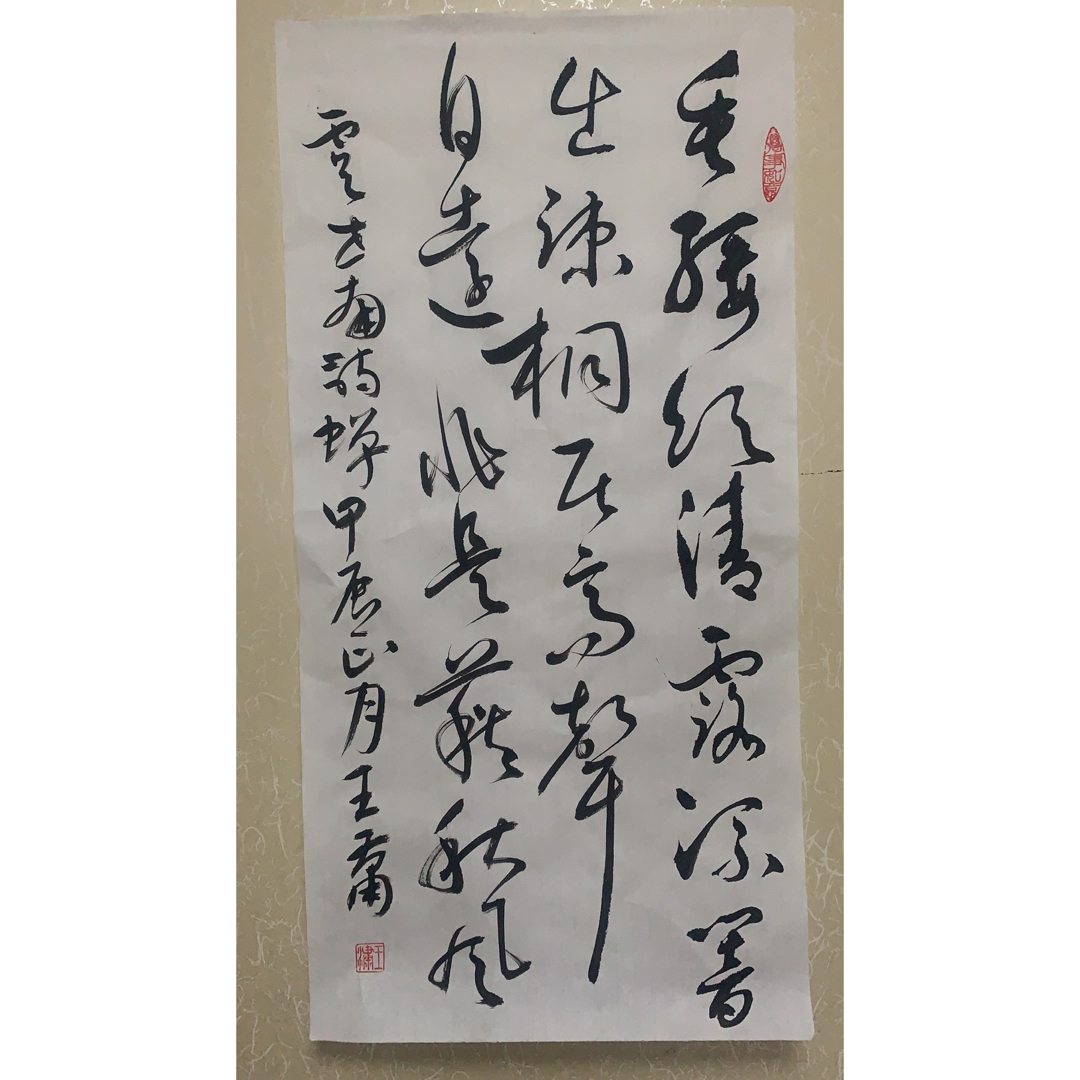 垂緌飲清露流響
出疎桐居高聲
自遠非是藉秋風
虞世南詩蝉甲辰正月王